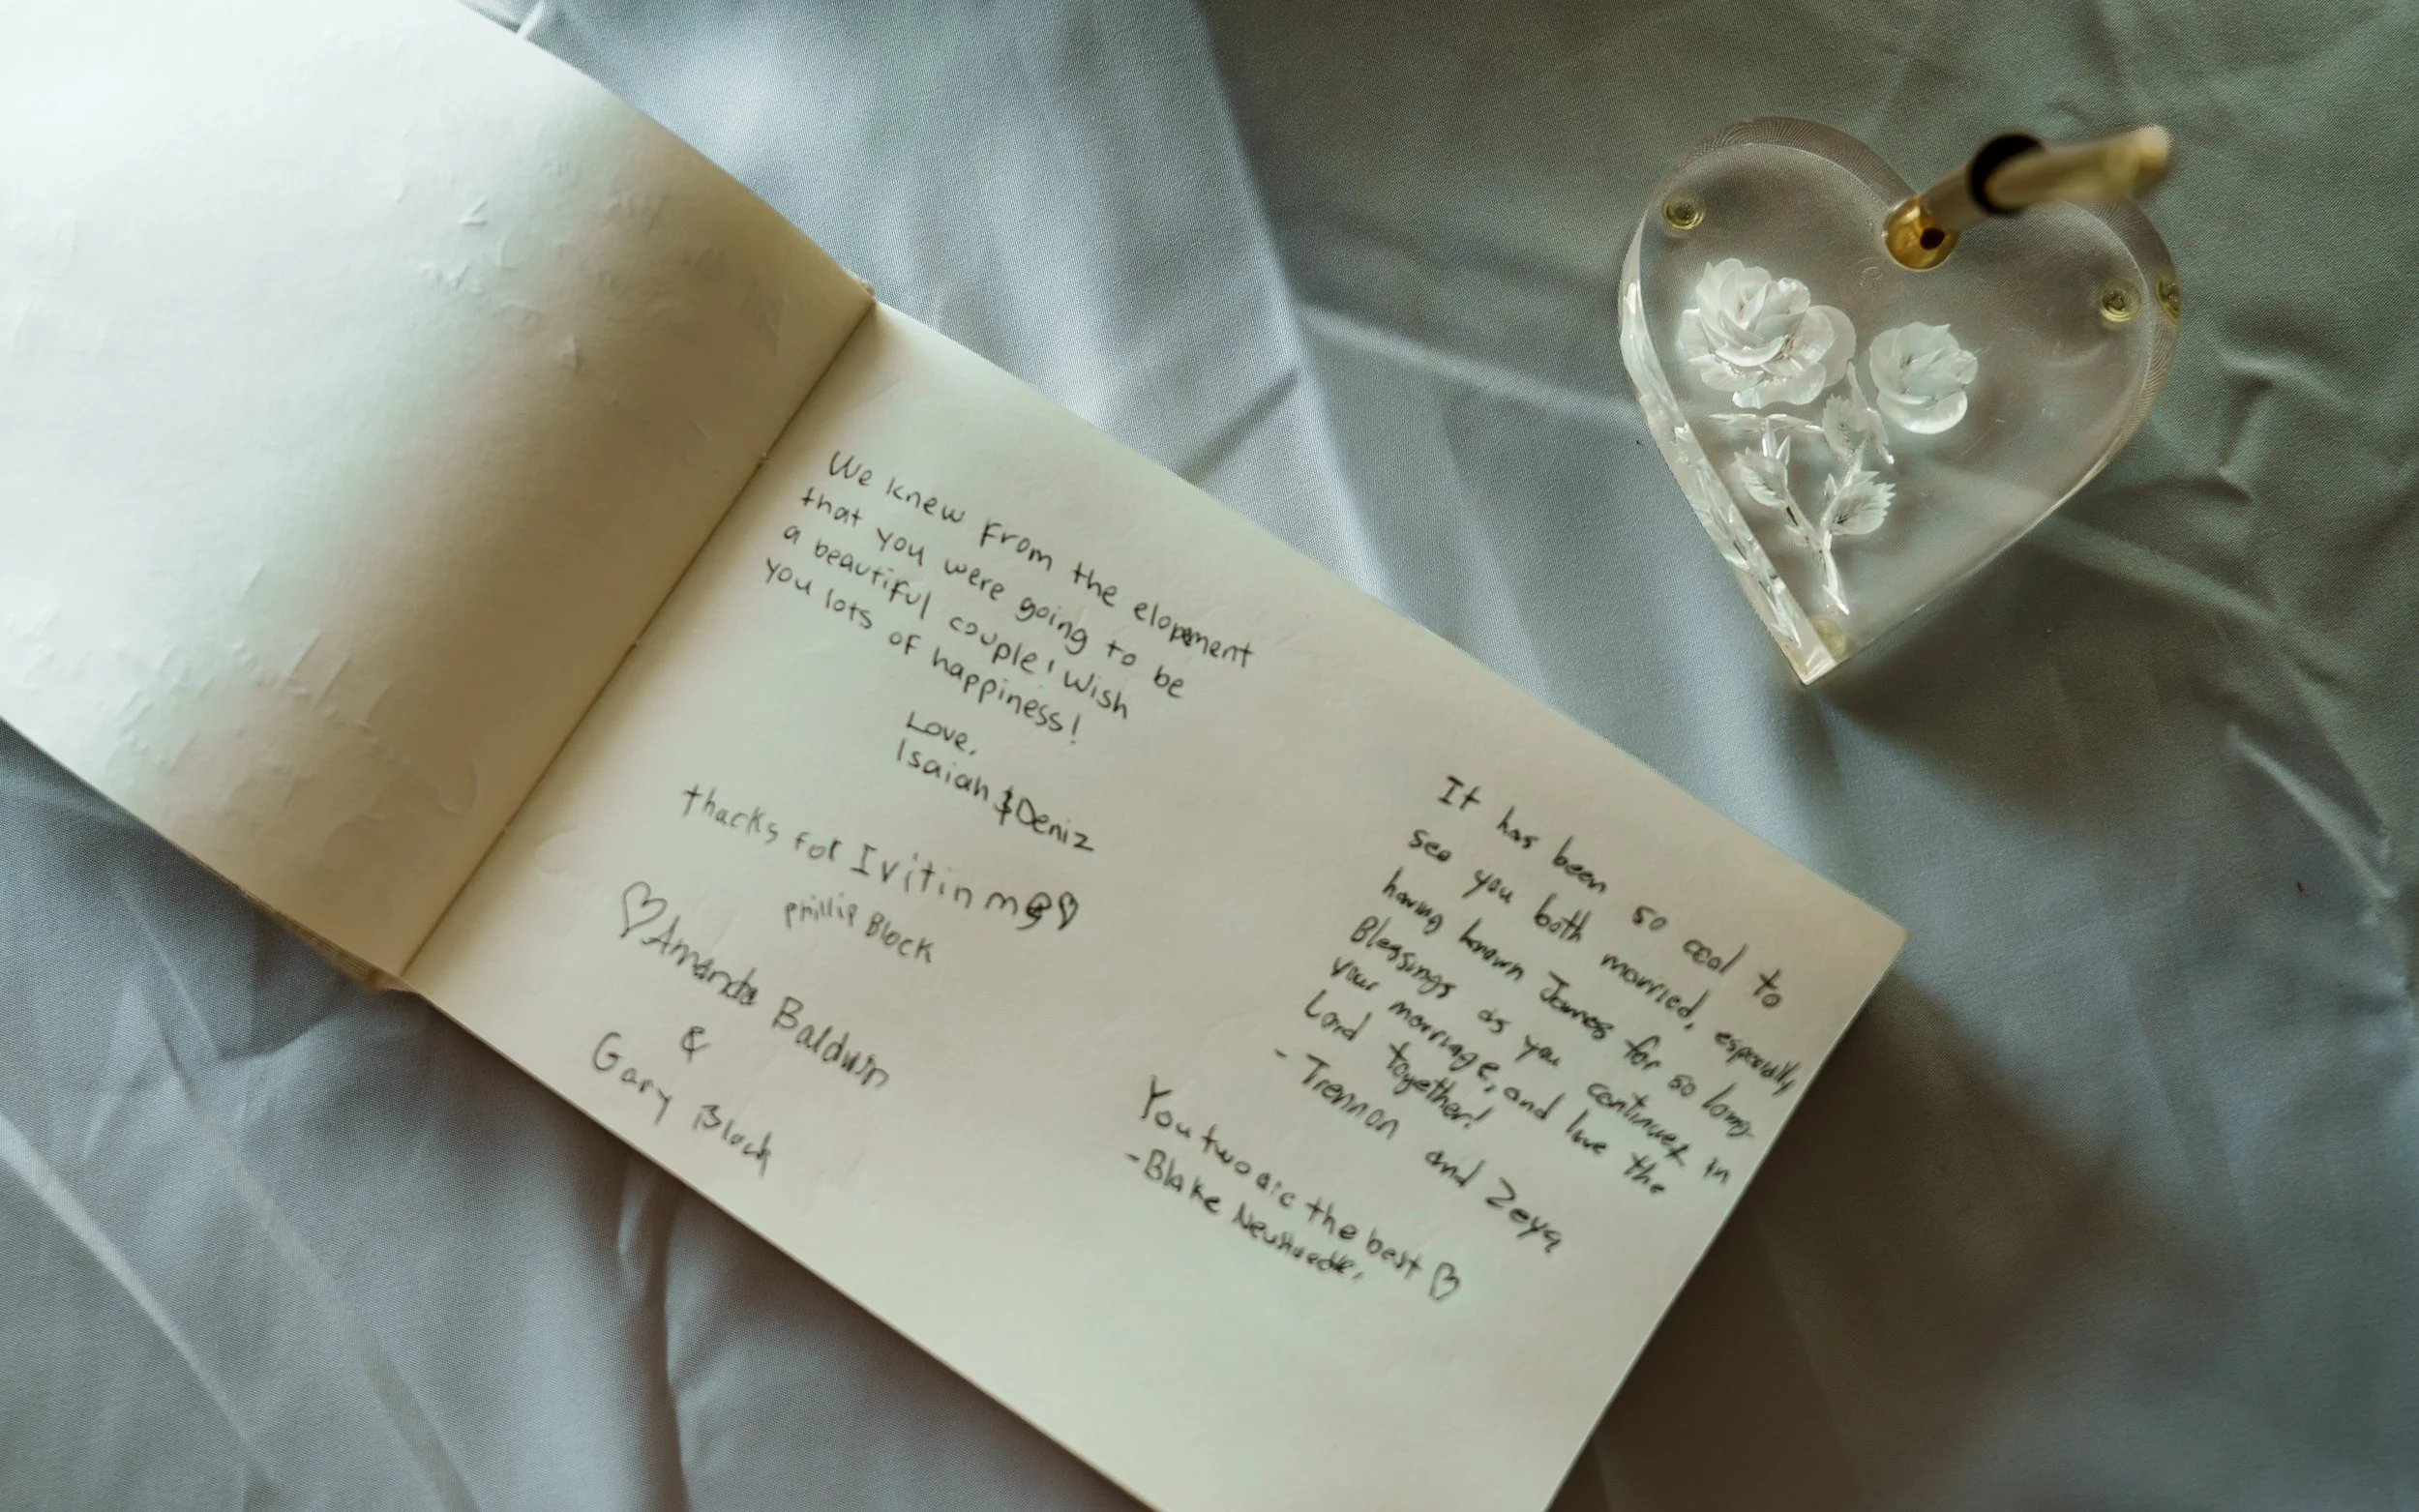 We knew from the elopement
that you were going to be
a beautiful couple! Wish
you lots of happiness!
Love,
Isaiah & Deniz
thacks for Ivitin me
Phillip Block
Amanda Baldwin
&
Gary Block
It has been so cool to
see you both married, especially
having known James for so long.
Blessings as you continue in
your marriage, and live the
Lord together!
- Trennon and Zeya
You two are the best
- Blake